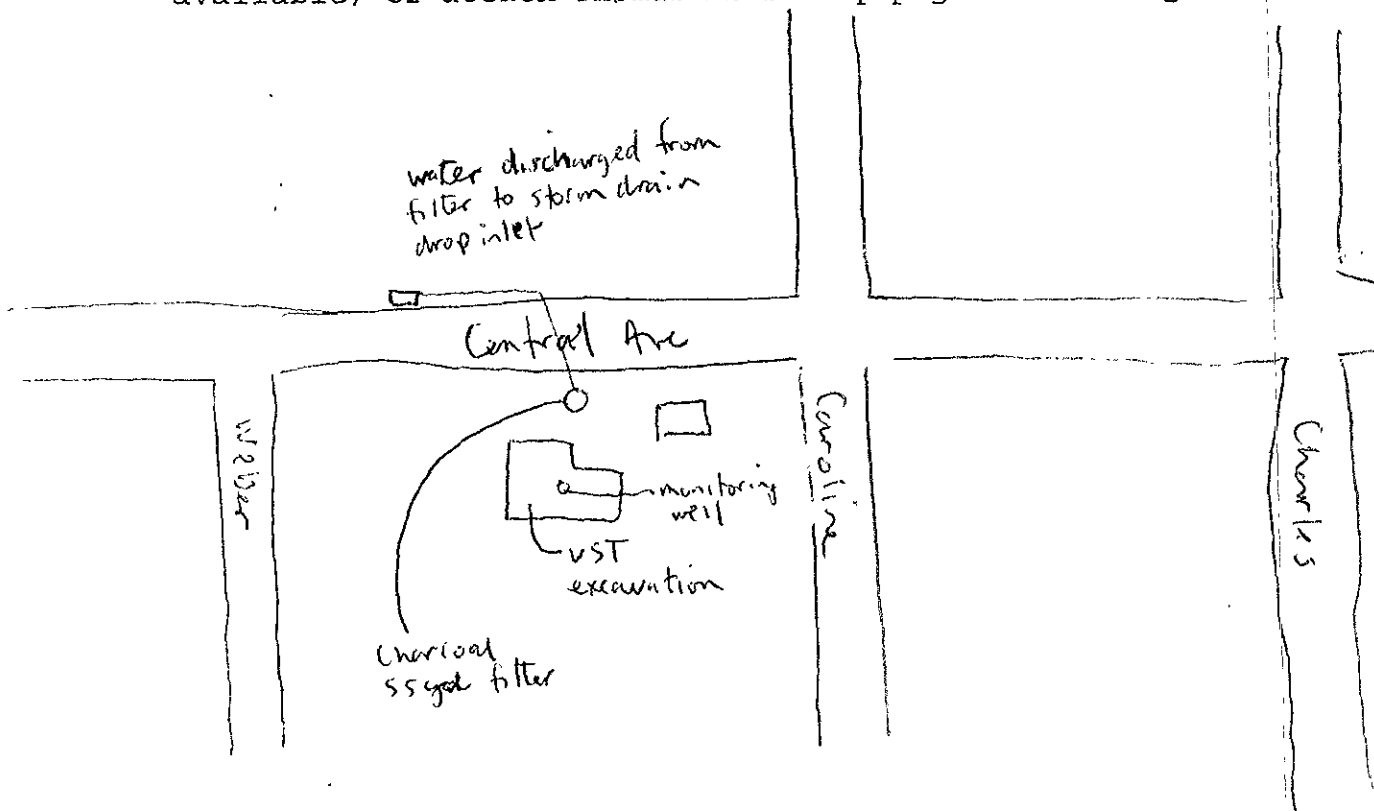 available, or attach
water discharged from
filter to storm drain
drop inlet
Central Ave
Weber
Caroline
Charles
monitoring
well
UST
excavation
Charcoal
55gal filter